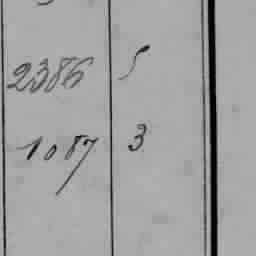 2386 5
1087 3